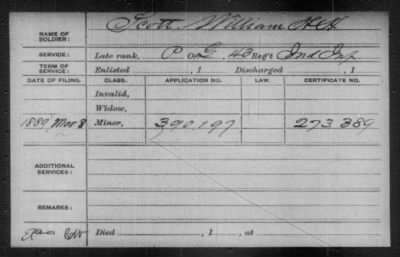 NAME OF SOLDIER: Scott, William H.H.
SERVICE: Late rank, P Co. E, 43 Reg't Ind Inf
TERM OF SERVICE: Enlisted , 1 Discharged , 1
DATE OF FILING. CLASS. APPLICATION NO. LAW. CERTIFICATE NO.
Invalid,
Widow,
1889, Mar 8 Minor, 390.197 273.389
ADDITIONAL SERVICES:
REMARKS:
Died , 1 , at